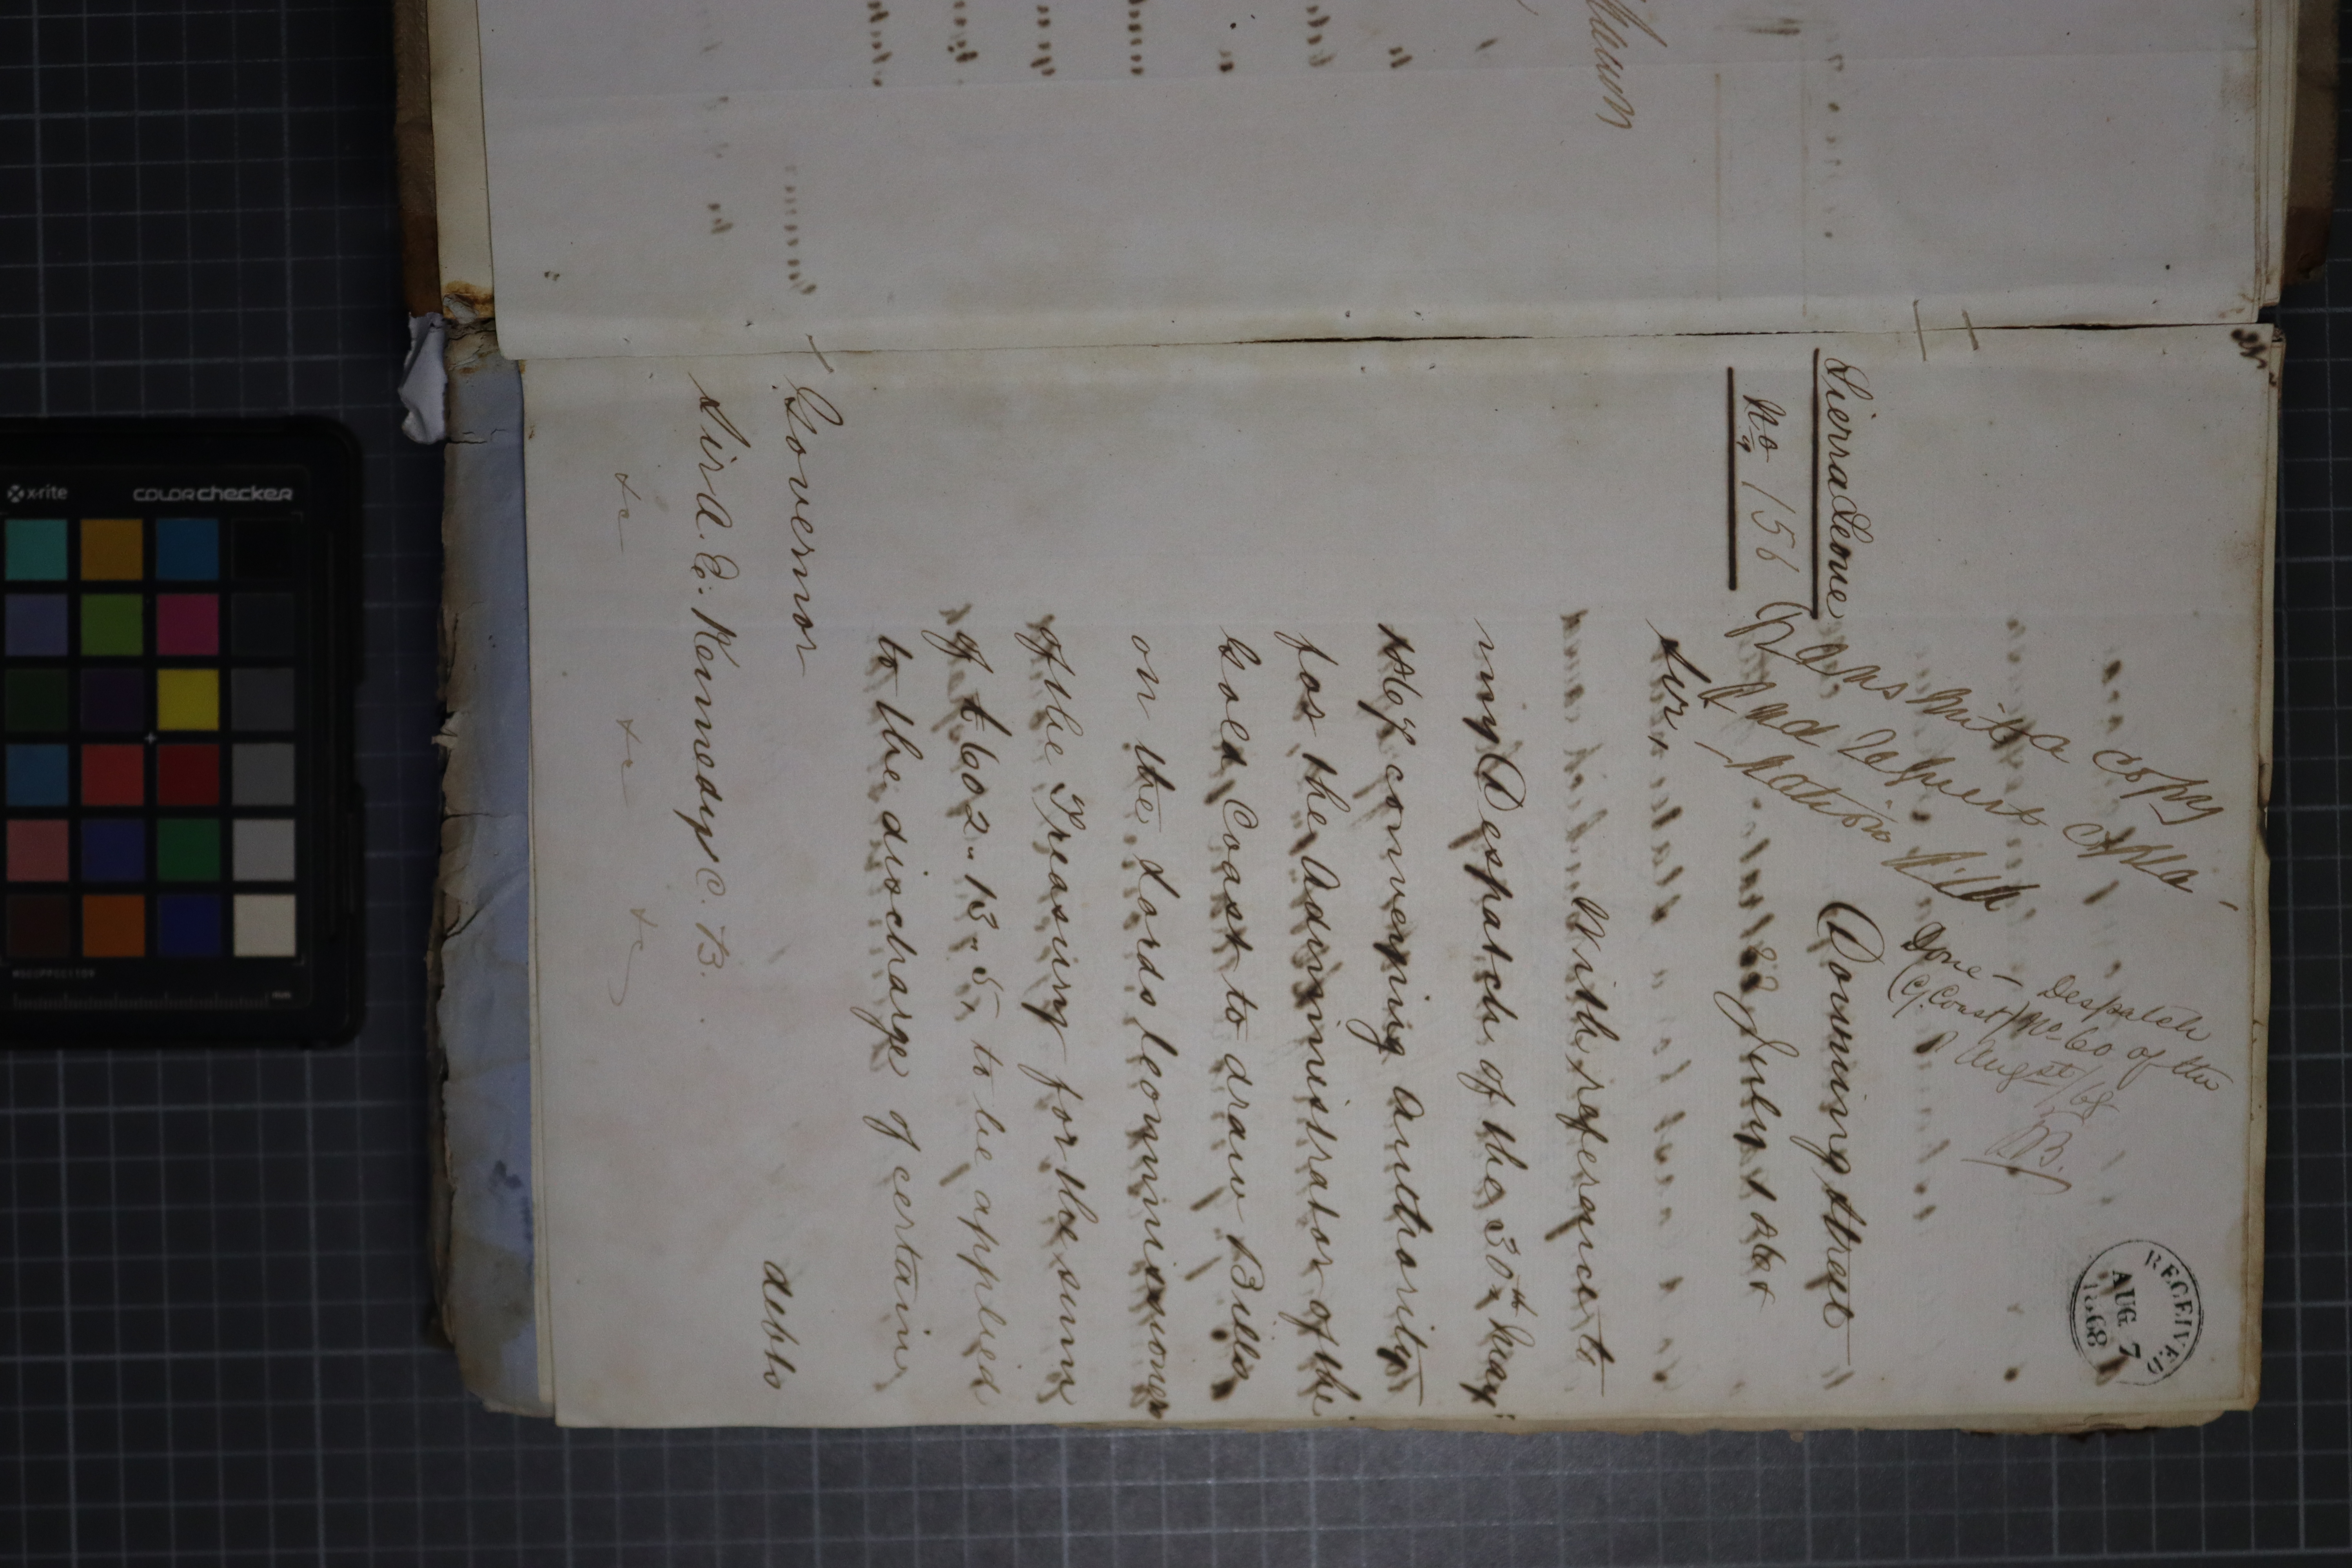 Sierra Leone
No. 156
Transmit a copy
and request expla
nation
Done - Despatch
(G. Coast) No. 60 of the
Augst/68
RECEIVED
AUG 7
1868
Downing Street
22 July 1868
Sir,
With reference to
my Despatch of the 30th May
1867 conveying authority
for the Administrator of the
Gold Coast to draw Bills
on the Lords Commissioners
of the Treasury for the sum
of £602-13-5, to be applied
to the discharge of certain
debts
Governor
Sir A. E. Kennedy C. B.
&c &c &c
x-rite
colorchecker